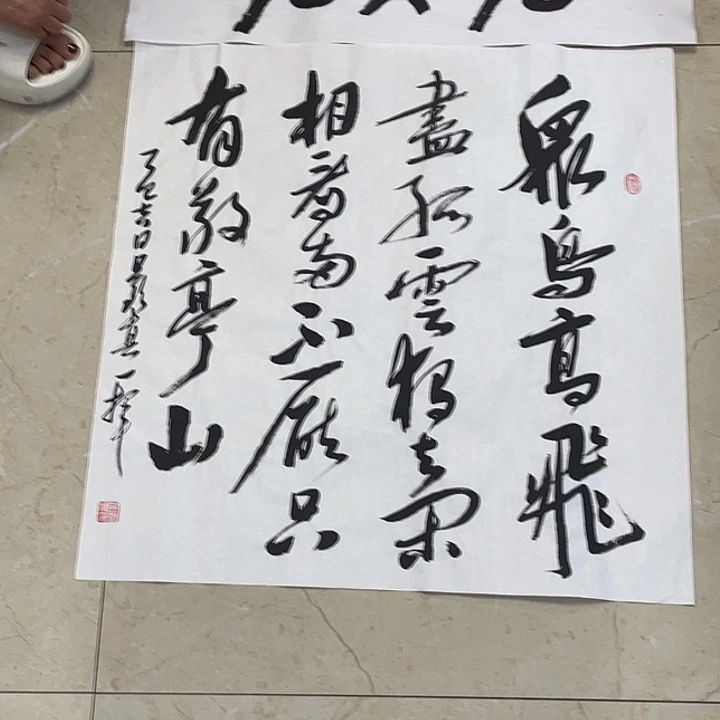 衆鳥高飛
盡孤雲獨去閑
相看兩不厭只
有敬亭山